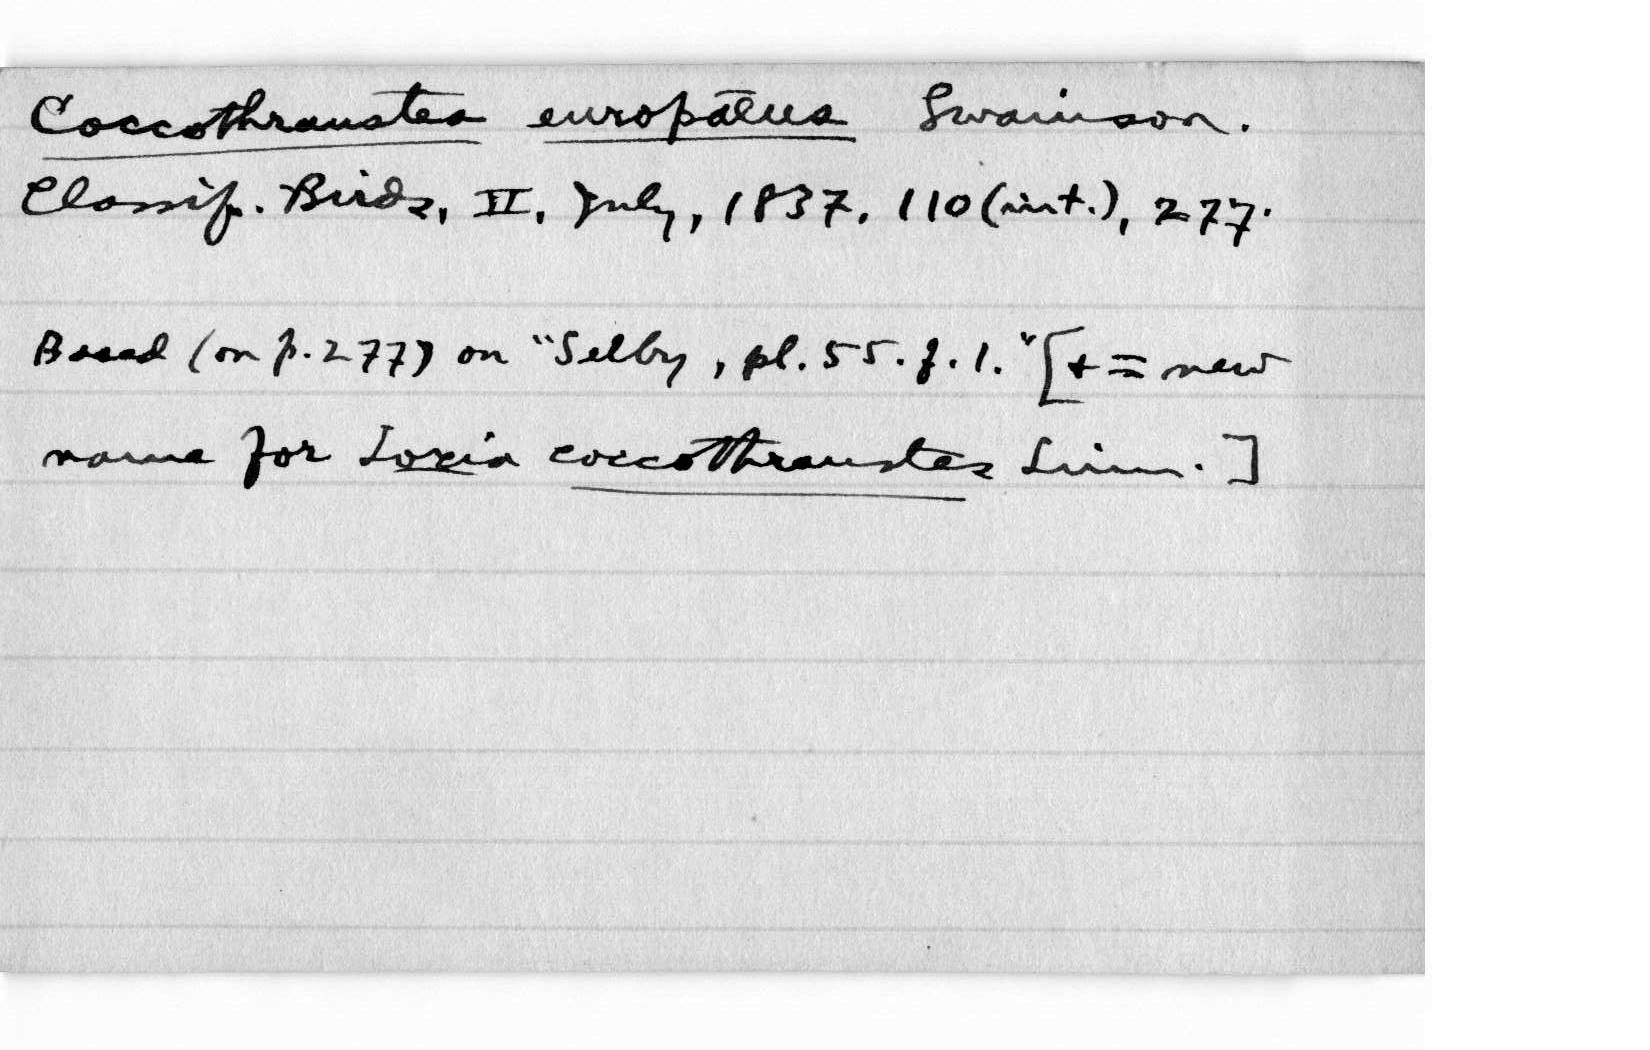 Coccothraustes europāeus Swainson.
Classif. Birds, II, July, 1837, 110 (int.), 277.
Based (on p. 277) on "Selby, pl. 55. f. 1." [+ = new
name for Loxia coccothraustes Linn.]